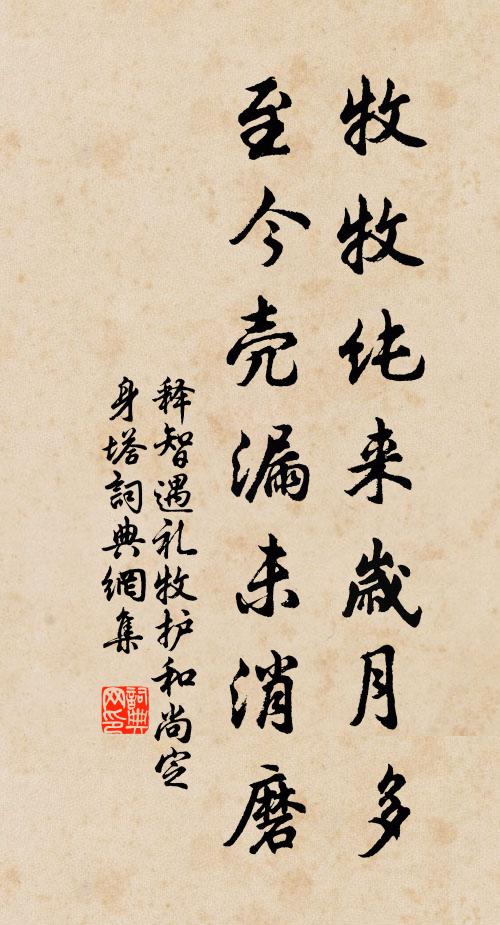 牧牧纯来歲月多
至今壳漏未消磨
释智遇礼牧护和尚定
身塔詞典網集
詞典网印